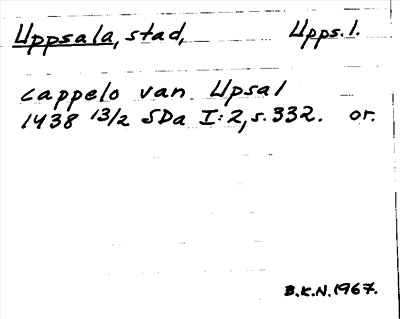 Uppsala, stad, Upps. l.
cappelo van Upsal
1438 13/2 SDa I:2, s. 332. or.
B.K.N. 1967.